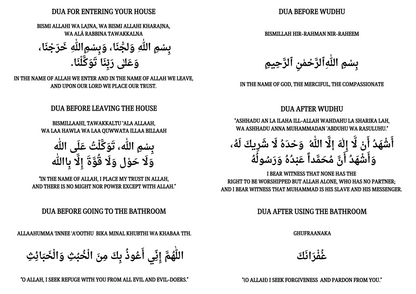 DUA FOR ENTERING YOUR HOUSE
BISMI ALLAHI WA LAJNA, WA BISMI ALLAHI KHARAJNA,
WA ALÀ RABBINA TAWAKKALNA
بِسْمِ اللَّهِ وَلَجْنَا، وَبِسْمِ اللَّهِ خَرَجْنَا،
وَعَلَى رَبِّنَا تَوَكَّلْنَا.
IN THE NAME OF ALLAH WE ENTER AND IN THE NAME OF ALLAH WE LEAVE,
AND UPON OUR LORD WE PLACE OUR TRUST.
DUA BEFORE WUDHU
BISMILLAH HIR-RAHMAN NIR-RAHEEM
بِسْمِ اللَّهِ الرَّحْمَٰنِ الرَّحِيمِ
IN THE NAME OF GOD, THE MERCIFUL, THE COMPASSIONATE
DUA BEFORE LEAVING THE HOUSE
BISMILLAAHI, TAWAKKALTU 'ALA ALLAAH,
WA LAA HAWLA WA LAA QUWWATA ILLAA BILLAAH
بِسْمِ اللَّهِ، تَوَكَّلْتُ عَلَى اللَّهِ
وَلَا حَوْلَ وَلَا قُوَّةَ إِلَّا بِاللَّهِ
"IN THE NAME OF ALLAH, I PLACE MY TRUST IN ALLAH,
AND THERE IS NO MIGHT NOR POWER EXCEPT WITH ALLAH."
DUA AFTER WUDHU
"ASHHADU AN LA ILAHA ILL-ALLAH WAHDAHU LA SHARIKA LAH,
WA ASHHADU ANNA MUHAMMADAN 'ABDUHU WA RASULUHU."
أَشْهَدُ أَنْ لَّا إِلَهَ إِلَّا اللَّهُ وَحْدَهُ لَا شَرِيكَ لَهُ،
وَأَشْهَدُ أَنَّ مُحَمَّداً عَبْدُهُ وَرَسُولُهُ
I BEAR WITNESS THAT NONE HAS THE
RIGHT TO BE WORSHIPPED BUT ALLAH ALONE, WHO HAS NO PARTNER;
AND I BEAR WITNESS THAT MUHAMMAD IS HIS SLAVE AND HIS MESSENGER.
DUA BEFORE GOING TO THE BATHROOM
ALLAAHUMMA 'INNEE 'A'OOTHU BIKA MINAL KHUBTHI WA KHABAA TTH.
اللَّهُمَّ إِنِّي أَعُوذُ بِكَ مِنَ الْخُبْثِ وَالْخَبَائِثِ
"O ALLAH, I SEEK REFUGE WITH YOU FROM ALL EVIL AND EVIL-DOERS."
DUA AFTER USING THE BATHROOM
GHUFRAANAKA
غُفْرَانَكَ
"(O ALLAH) I SEEK FORGIVENESS AND PARDON FROM YOU."